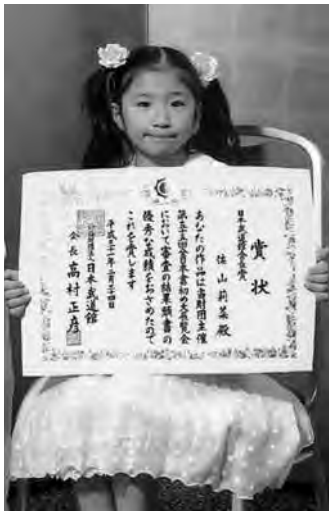 賞状
日本武道館会長賞
佐山莉菜殿
あなたの作品は当財団主催
第五十五回全日本書初め大展覧会
において審査の結果頭書の
優秀な成績をおさめたので
これを賞します
平成三十一年二月二十四日
公益財団法人日本武道館
会長 高村正彦